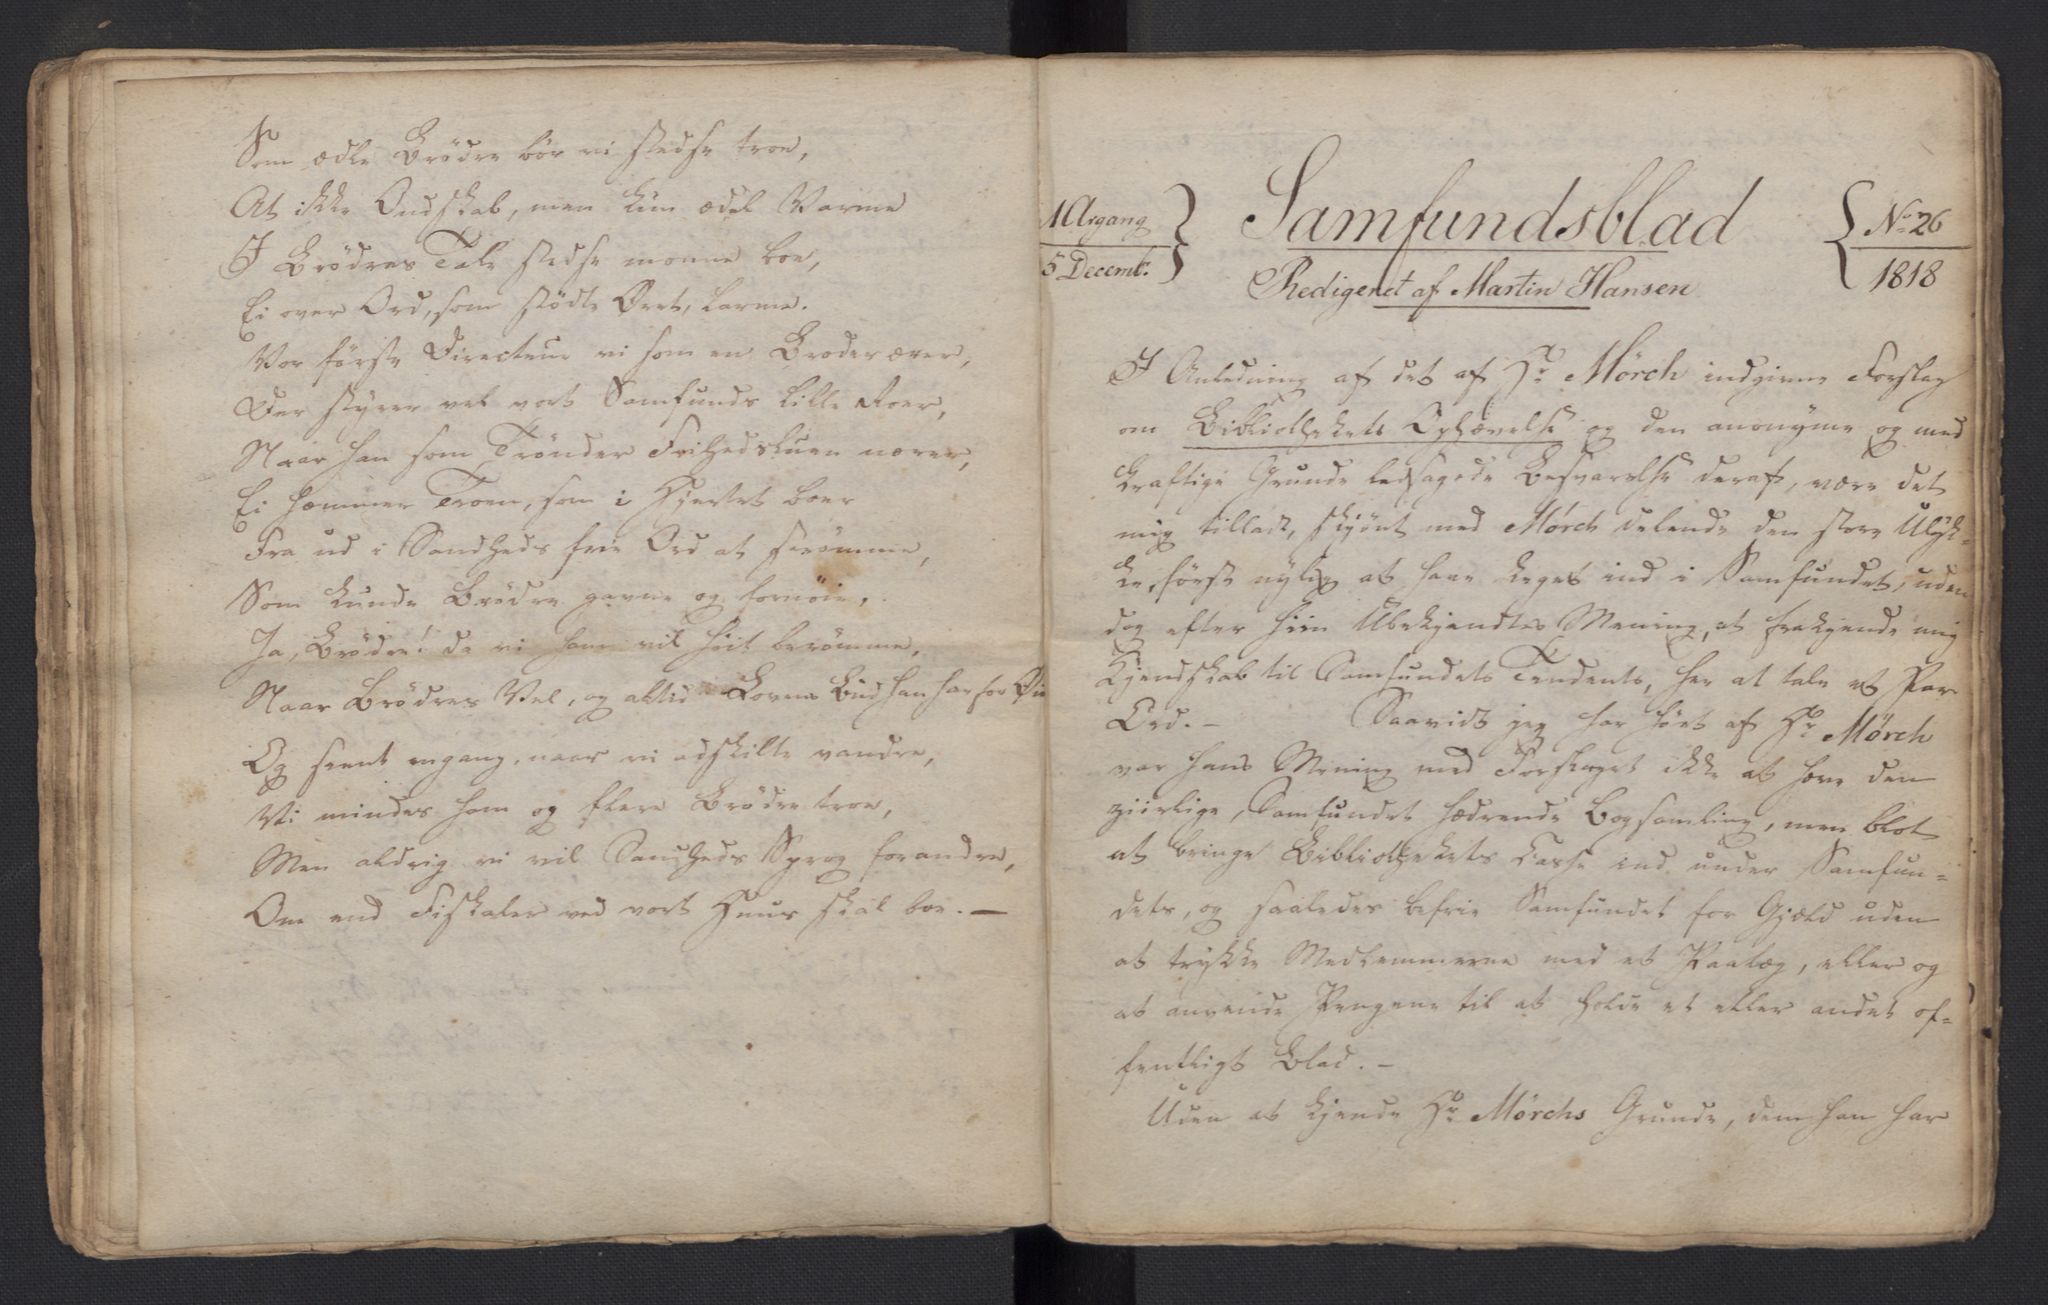 Som ædle Brødre bør vi stedse troe,
At ikke Ondskab, men kun ædel Varme
I Brødres Tale stedse monne boe,
Ei over Ord, som stødte Øret, larme.
Vor første Directeur vi som en Broder ærer,
Der styrer vel vort Samfunds lille Roer,
Naar han som Trønder Frihedsluen nærer,
Ei hæmmer Troen, som i Hjertet boer
Fra ud i Sandheds frie Ord at strømme,
Som kunde Brødre gavne og fornøie.
Ja, Brødre! da vi ham vil høit berømme,
Naar Brødres Vel, og altid Lovens Bud han har for Øie
Og seent engang, naar vi adskilte vandre,
Vi mindes ham og flere Brødre troe,
Men aldrig vi vil Sandheds Sprog forandre,
Om end Fiskaler ved vort Huus skal boe. —
1 Argang
5 Decemb:
Samfundsblad
Redigeret af Martin Hansen
No 26
1818
I Anledning af det af Hr Mørch indgivne Forslag
om Bibliothekets Ophævelse og den anonyme og med
kraftige Grunde ledsagede Besvarelse deraf, være det
mig tilladt, skjønt med Mørch delende den store Ulyk-
ke, først nylig at have

 ind i Samfundet, uden
dog efter hiin Ubekjendtes Mening, at frakjende mig
Kjendskab til Samfundets Tendents, her at tale et Par
Ord. — Saavidt jeg har hørt af Hr Mørch
var hans Mening med Forslaget ikke at hæve den
ziirlige, Samfundet hædrende Bogsamling, men blot
at bringe Bibliothekets Casse ind under Samfun-
dets, og saaledes befrie Samfundet for Gjæld uden
at trykke Medlemmerne med et Paalæg, eller og
at anvende Pengene til at holde et eller andet of-
fentligt Blad. —
Uden at kjende Hr Mørchs Grunde, dem han har